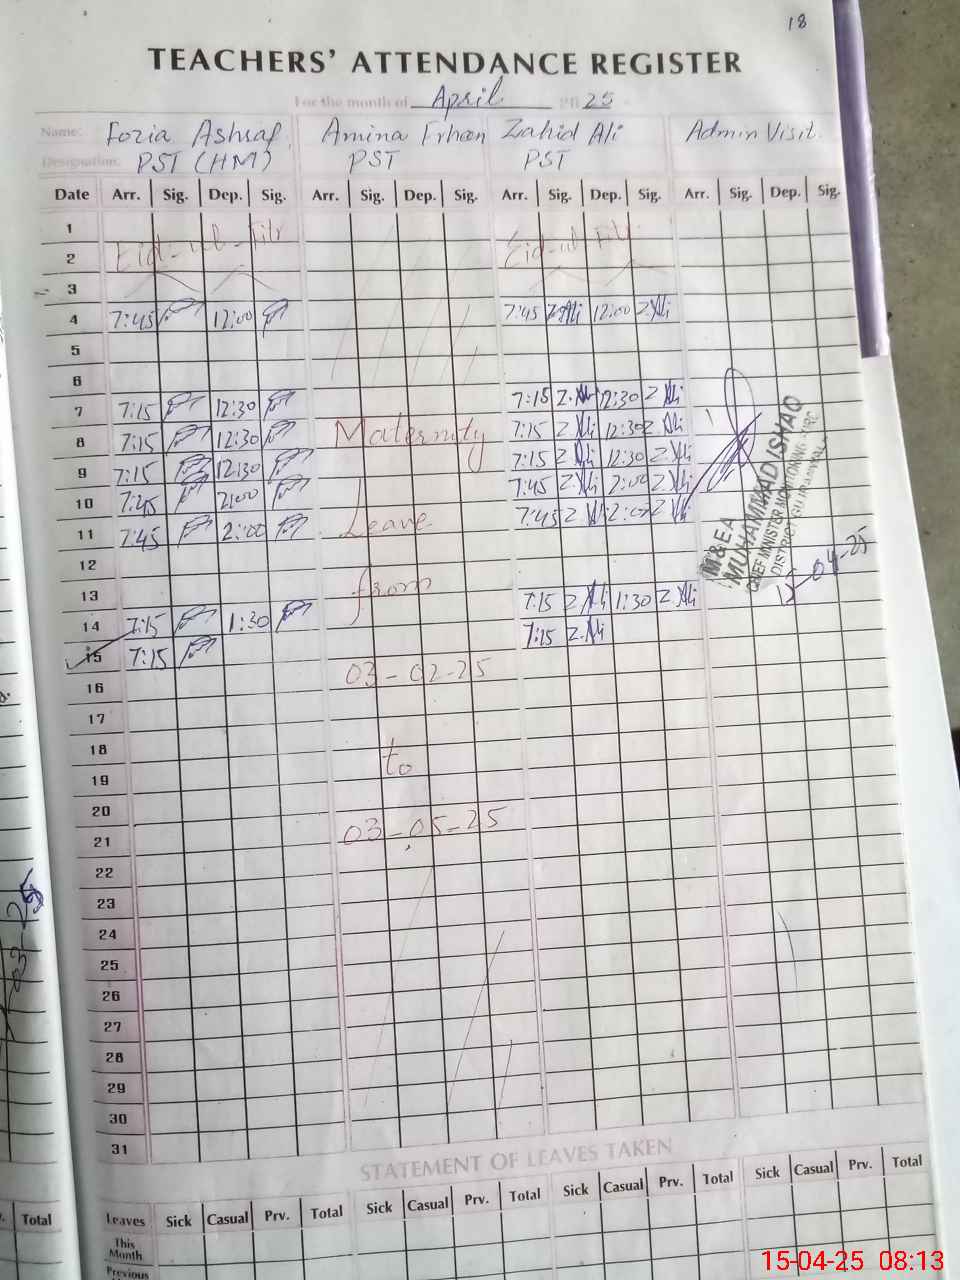 18
TEACHERS' ATTENDANCE REGISTER
For the month of April 20 25
Name: Fozia Ashraf Amina Erhan Zahid Ali Admin Visit.
Designation: PST (HM) PST PST
Date Arr. Sig. Dep. Sig. Arr. Sig. Dep. Sig. Arr. Sig. Dep. Sig. Arr. Sig. Dep. Sig.
1
2 Eid-ul-Fitr Eid-ul-Fitr
3
4 7:45 12:00 7:45 Z.Ali 12:00 Z.Ali
5
6
7 7:15 12:30 7:15 Z.Ali 12:30 Z.Ali
8 7:15 12:30 Maternity 7:15 Z.Ali 12:30 Z.Ali
9 7:15 12:30 7:15 Z.Ali 12:30 Z.Ali
10 7:45 2:00 7:45 Z.Ali 2:00 Z.Ali
11 7:45 2:00 Leave 7:45 Z.Ali 2:00 Z.Ali
12
13 from
14 7:15 1:30 7:15 Z.Ali 1:30 Z.Ali
15 7:15 7:15 Z.Ali
16 03-02-25
17
18
19 to
20
21 03-05-25
22
23
24
25
26
27
28
29
30
31
M&EA
MUHAMMAD ISHAQ
CHIEF MINISTER MONITORING
DISTRICT
15-04-25
STATEMENT OF LEAVES TAKEN
Leaves Sick Casual Prv. Total Sick Casual Prv. Total Sick Casual Prv. Total Sick Casual Prv. Total
This
Month
Previous
Total
15-04-25 08:13